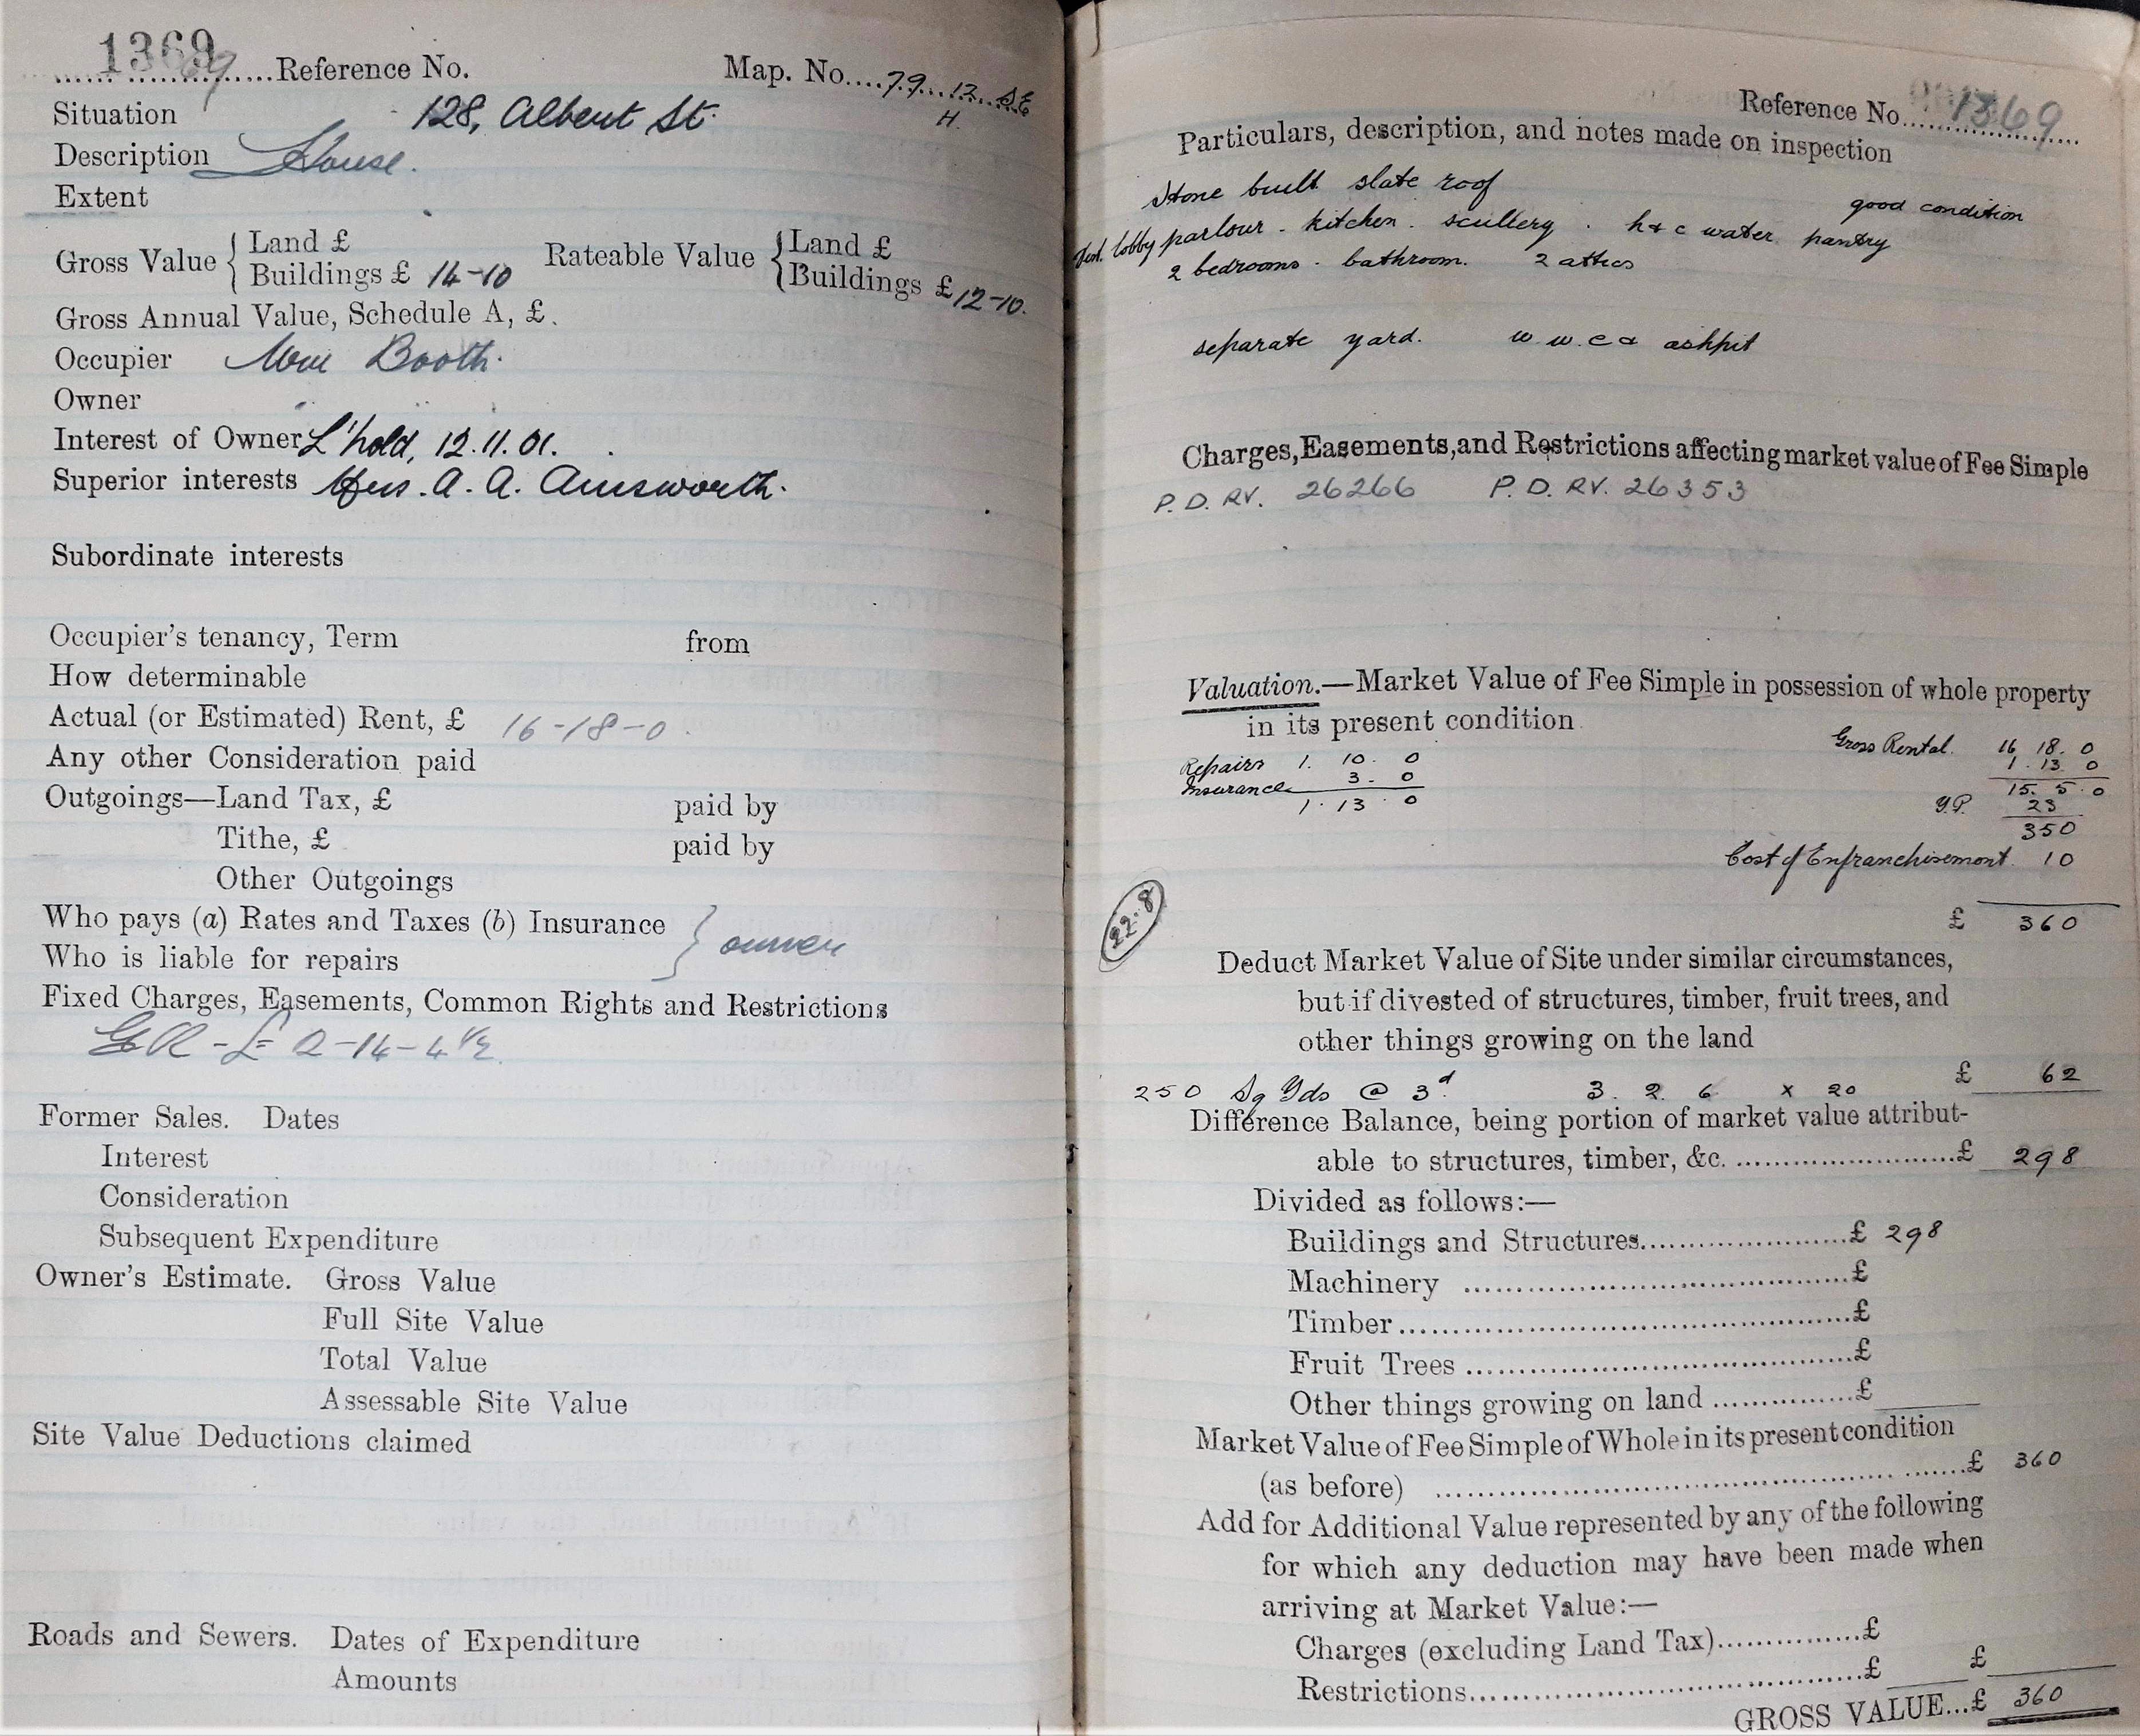 1369 Reference No. Map. No. 79 12 SE
H.
Situation 128, Albert St.
Description House.
Extent
Gross Value { Land £
Buildings £ 14-10
Rateable Value { Land £
Buildings £ 12-10.
Gross Annual Value, Schedule A, £.
Occupier Wm Booth.
Owner
Interest of Owner L'hold, 12.11.01.
Superior interests A. A. Ainsworth.
Subordinate interests
Occupier's tenancy, Term from
How determinable
Actual (or Estimated) Rent, £ 16-18-0.
Any other Consideration paid
Outgoings—Land Tax, £ paid by
Tithe, £ paid by
Other Outgoings
Who pays (a) Rates and Taxes (b) Insurance
Who is liable for repairs } owner
Fixed Charges, Easements, Common Rights and Restrictions
GR - £ 2-14-4½
Former Sales. Dates
Interest
Consideration
Subsequent Expenditure
Owner's Estimate. Gross Value
Full Site Value
Total Value
Assessable Site Value
Site Value Deductions claimed
Roads and Sewers. Dates of Expenditure
Amounts
Reference No. 1369
Particulars, description, and notes made on inspection
Stone built slate roof good condition
lobby parlour. kitchen. scullery. h & c water pantry
2 bedrooms. bathroom. 2 attics
separate yard. w.w.c & ashpit
Charges, Easements, and Restrictions affecting market value of Fee Simple
P.D. RV. 26266 P.D. RV. 26353
Valuation.—Market Value of Fee Simple in possession of whole property
in its present condition
Gross Rental. 16 18. 0
Repairs 1. 10. 0 1. 13 0
Insurance 3. 0 15. 5. 0
1. 13. 0 Y.P. 23
350
Cost of Enfranchisement. 10
22.8
£ 360
Deduct Market Value of Site under similar circumstances,
but if divested of structures, timber, fruit trees, and
other things growing on the land
250 Sq Yds @ 3d 3. 2. 6 x 20 £ 62
Difference Balance, being portion of market value attribut-
able to structures, timber, &c. £ 298
Divided as follows:—
Buildings and Structures £ 298
Machinery £
Timber £
Fruit Trees £
Other things growing on land £
Market Value of Fee Simple of Whole in its present condition
(as before) £ 360
Add for Additional Value represented by any of the following
for which any deduction may have been made when
arriving at Market Value:—
Charges (excluding Land Tax) £
Restrictions £ £
GROSS VALUE...£ 360